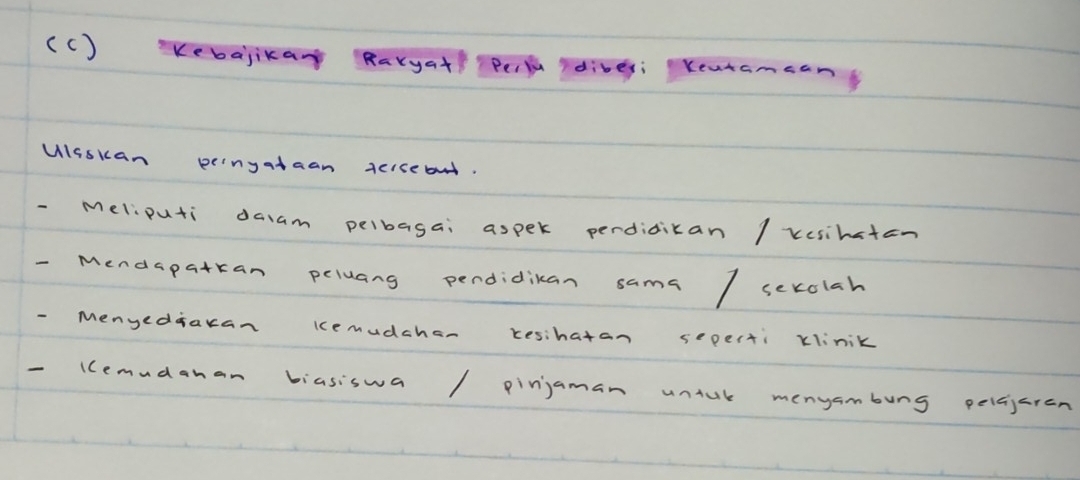 (c) Kebajikan Rakyat Perlu diberi Keutamaan
Ulaskan pernyataan tersebut.
- Meliputi dalam pelbagai aspek pendidikan / kesihatan
- Mendapatkan peluang pendidikan sama / sekolah
- Menyediakan kemudahan kesihatan seperti klinik
- Kemudahan biasiswa / pinjaman untuk menyambung pelajaran